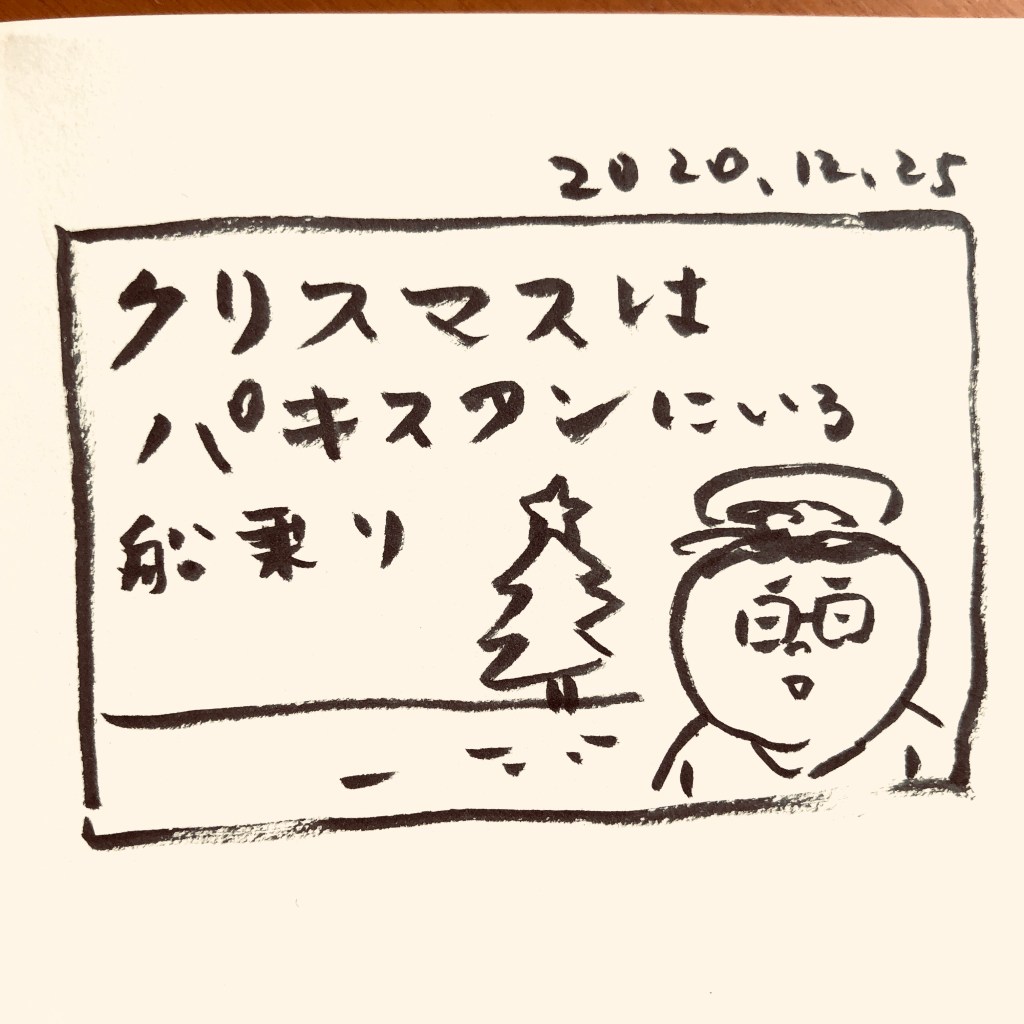 2020.12.25
クリスマスは
パキスタンにいる
船乗り